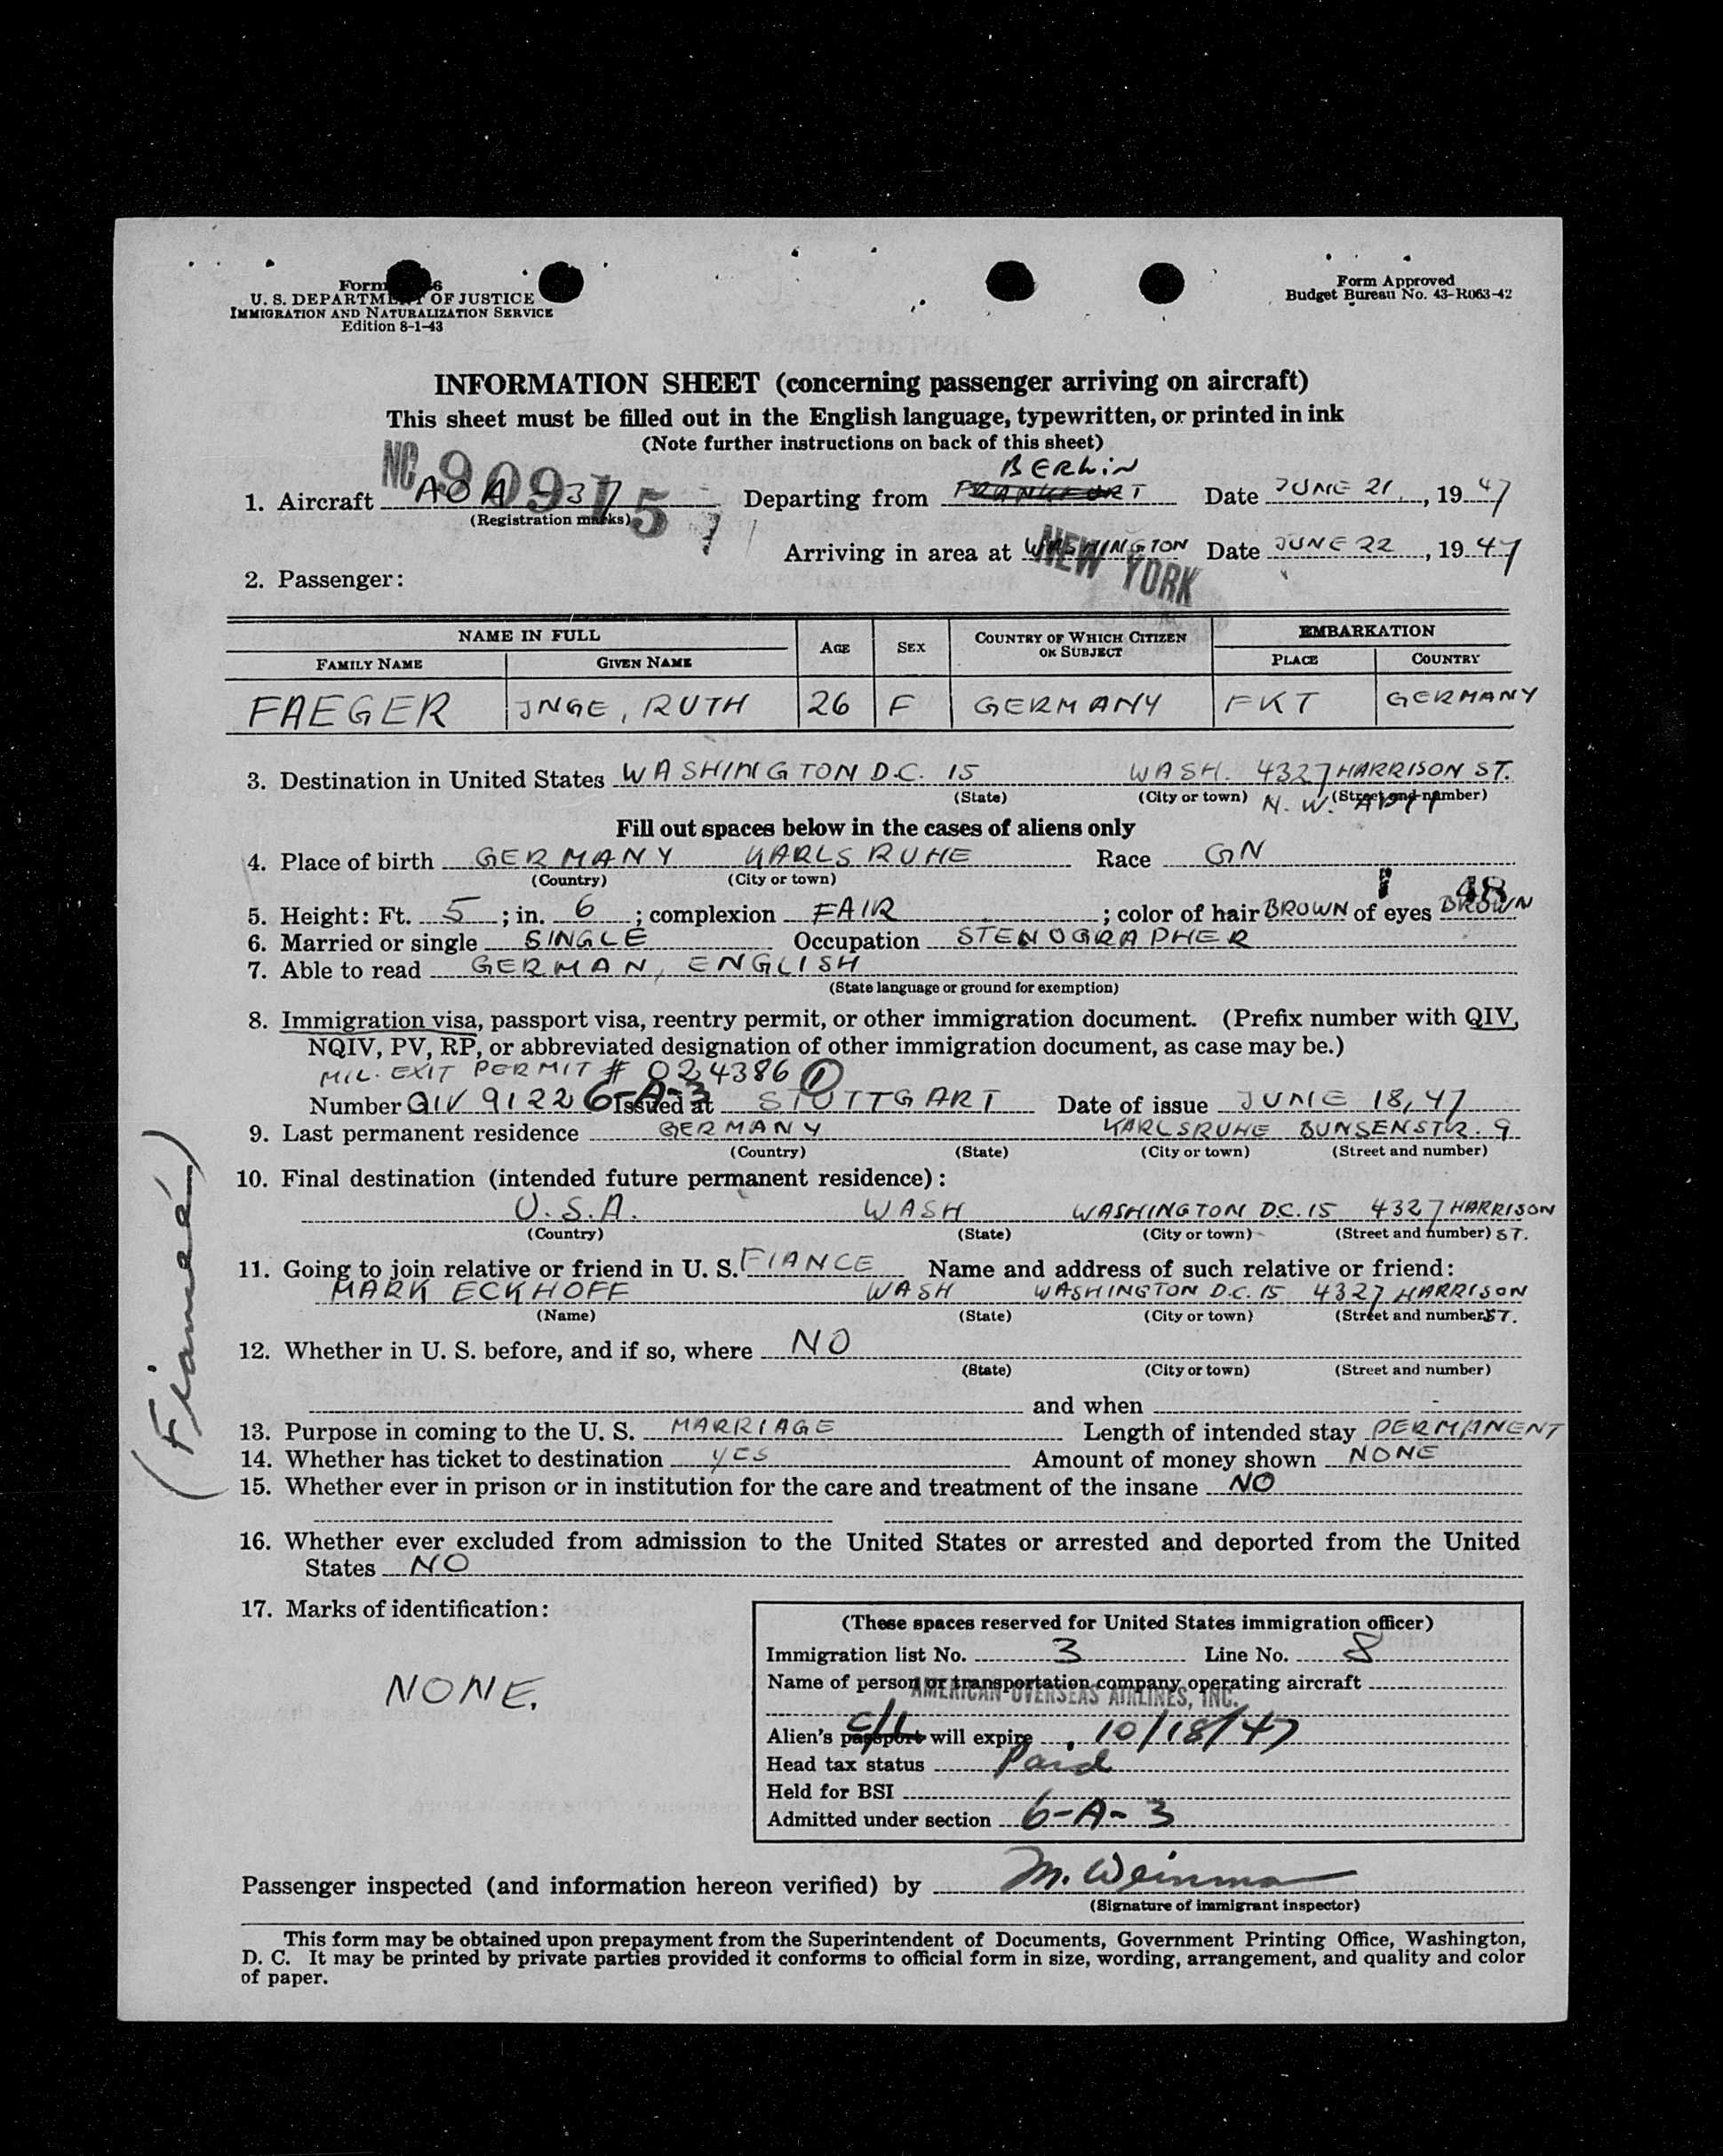 Form 6
U. S. DEPARTMENT OF JUSTICE
IMMIGRATION AND NATURALIZATION SERVICE
Edition 8-1-43
Form Approved
Budget Bureau No. 43-R063-42
INFORMATION SHEET (concerning passenger arriving on aircraft)
This sheet must be filled out in the English language, typewritten, or printed in ink
(Note further instructions on back of this sheet)
NO. 90915
BERLIN
1. Aircraft AOA -37 Departing from FRANKFURT Date JUNE 21, 1947
(Registration marks)
Arriving in area at WASHINGTON Date JUNE 22, 1947
NEW YORK
2. Passenger:
NAME IN FULL AGE SEX COUNTRY OF WHICH CITIZEN OR SUBJECT EMBARKATION
FAMILY NAME GIVEN NAME PLACE COUNTRY
FAEGER JNGE, RUTH 26 F GERMANY FKT GERMANY
3. Destination in United States WASHINGTON D.C. 15 WASH. 4327 HARRISON ST.
(State) (City or town) (Street and number)
N.W. APT 1
Fill out spaces below in the cases of aliens only
4. Place of birth GERMANY KARLSRUHE Race GN
(Country) (City or town)
48
5. Height: Ft. 5; in. 6; complexion FAIR; color of hair BROWN of eyes BROWN
6. Married or single SINGLE Occupation STENOGRAPHER
7. Able to read GERMAN, ENGLISH
(State language or ground for exemption)
8. Immigration visa, passport visa, reentry permit, or other immigration document. (Prefix number with QIV,
NQIV, PV, RP, or abbreviated designation of other immigration document, as case may be.)
MIL. EXIT PERMIT # 024386 1
Number QIV 9122 6-A-3 Issued at STUTTGART Date of issue JUNE 18, 47
9. Last permanent residence GERMANY KARLSRUHE BUNSENSTR. 9
(Country) (State) (City or town) (Street and number)
10. Final destination (intended future permanent residence):
U.S.A. WASH WASHINGTON D.C. 15 4327 HARRISON
(Country) (State) (City or town) (Street and number) ST.
11. Going to join relative or friend in U. S. FIANCE Name and address of such relative or friend:
MARK ECKHOFF WASH WASHINGTON D.C. 15 4327 HARRISON
(Name) (State) (City or town) (Street and number) ST.
12. Whether in U. S. before, and if so, where NO
(State) (City or town) (Street and number)
and when
13. Purpose in coming to the U. S. MARRIAGE Length of intended stay PERMANENT
14. Whether has ticket to destination YES Amount of money shown NONE
15. Whether ever in prison or in institution for the care and treatment of the insane NO
16. Whether ever excluded from admission to the United States or arrested and deported from the United
States NO
(Fianceé)
17. Marks of identification:
NONE.
(These spaces reserved for United States immigration officer)
Immigration list No. 3 Line No. 8
Name of person or transportation company operating aircraft
AMERICAN OVERSEAS AIRLINES, INC.
c/I
Alien's passport will expire 10/18/47
Head tax status Paid
Held for BSI
Admitted under section 6-A-3
Passenger inspected (and information hereon verified) by M.
(Signature of immigrant inspector)
This form may be obtained upon prepayment from the Superintendent of Documents, Government Printing Office, Washington,
D. C. It may be printed by private parties provided it conforms to official form in size, wording, arrangement, and quality and color
of paper.